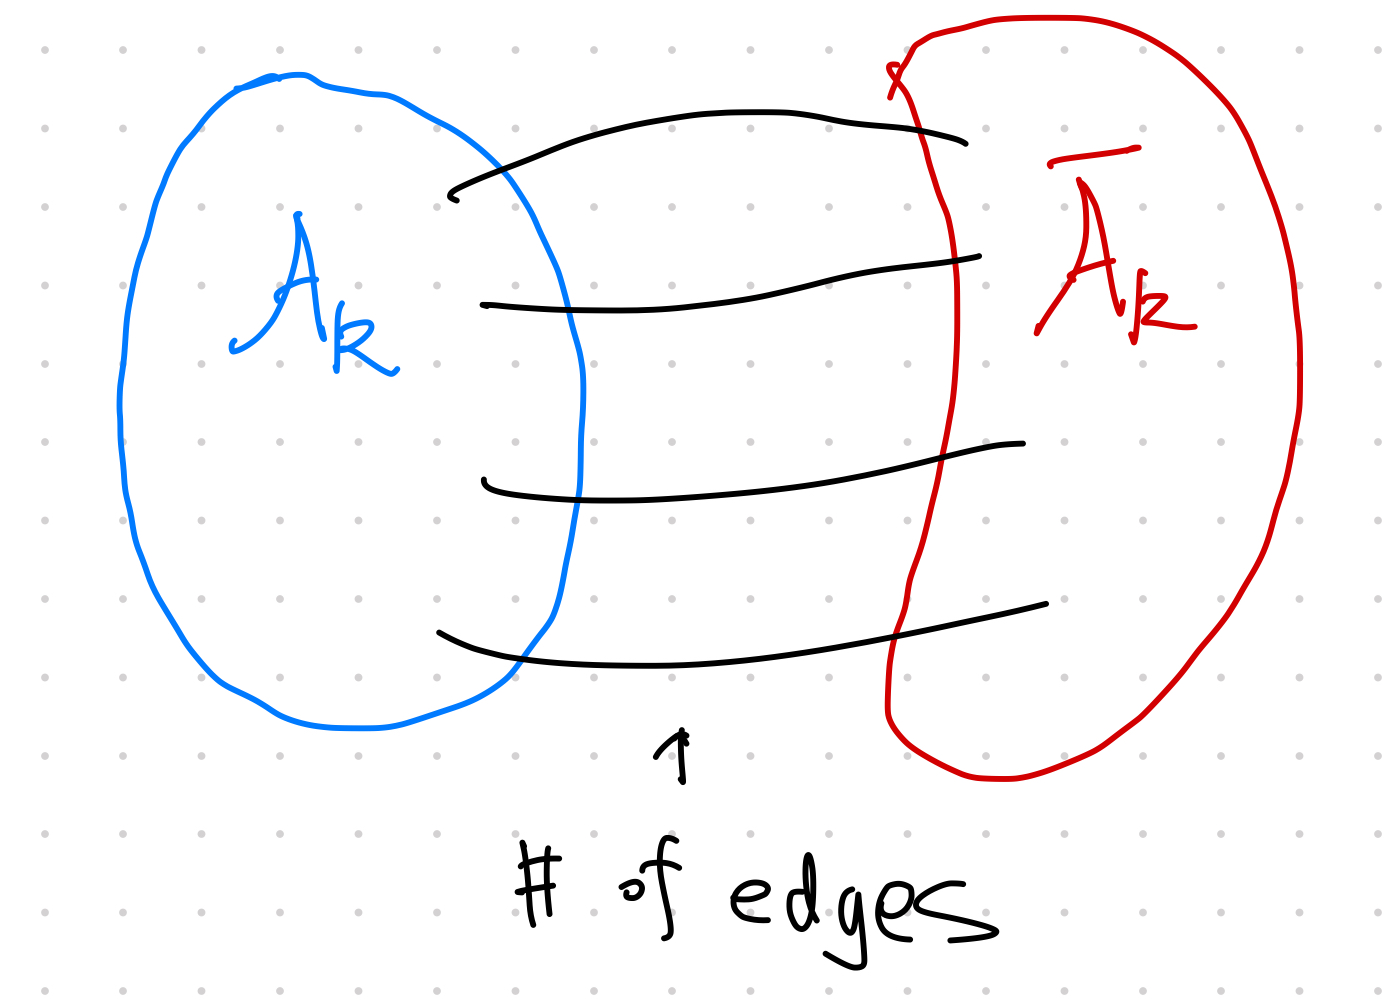 A_k
Ā_k
# of edges